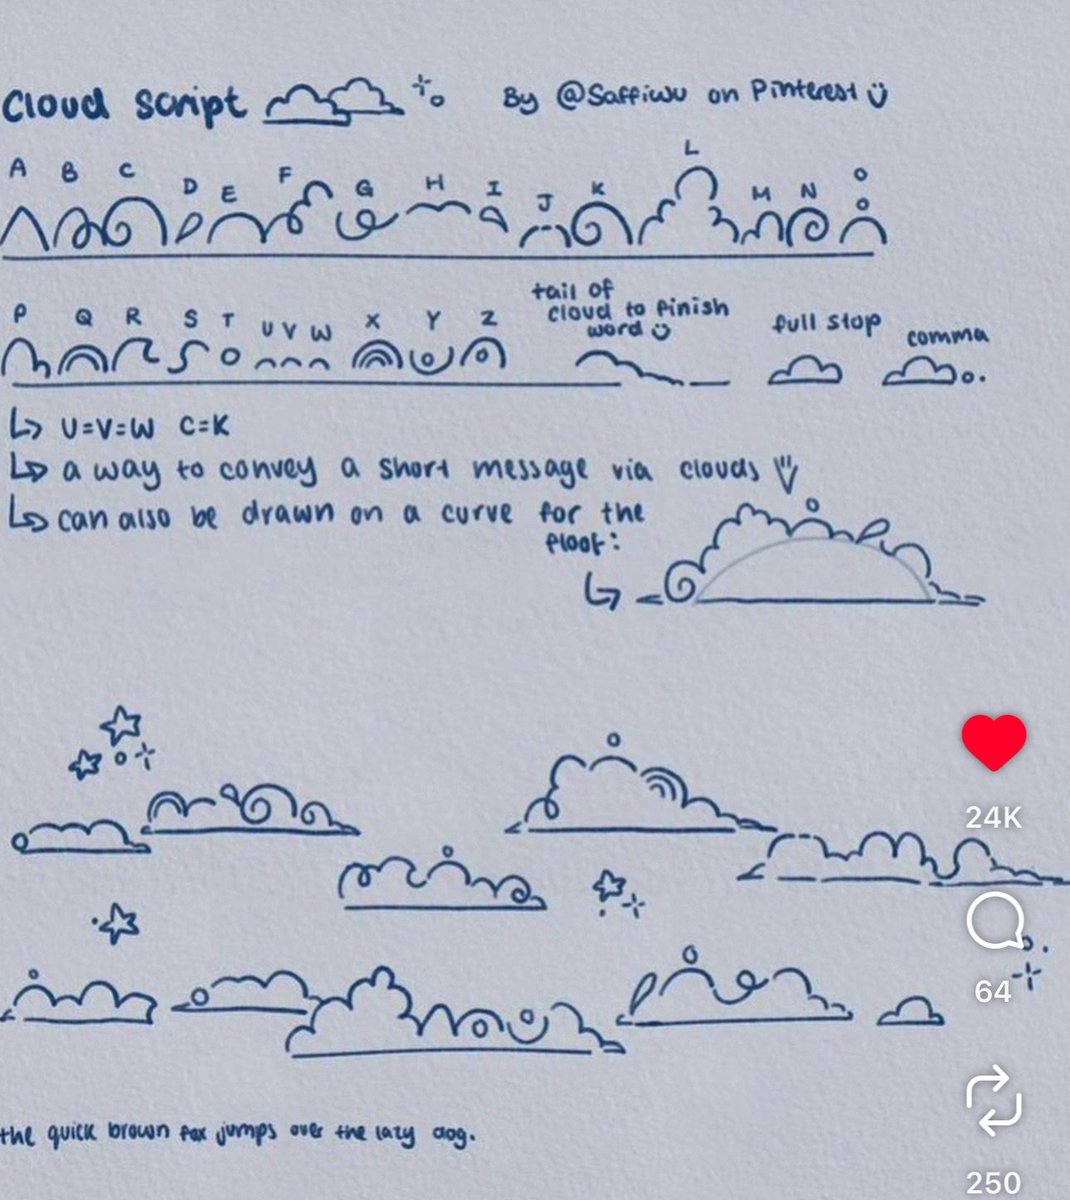 Cloud Script By @Saffiwu on Pinterest
A B C D E F G H I J K L M N
P Q R S T U V W X Y Z
tail of cloud to finish word
full stop
comma
U=V=W C=K
a way to convey a short message via clouds
can also be drawn on a curve for the
floof:
24K
64
250
the quick brown fox jumps over the lazy dog.